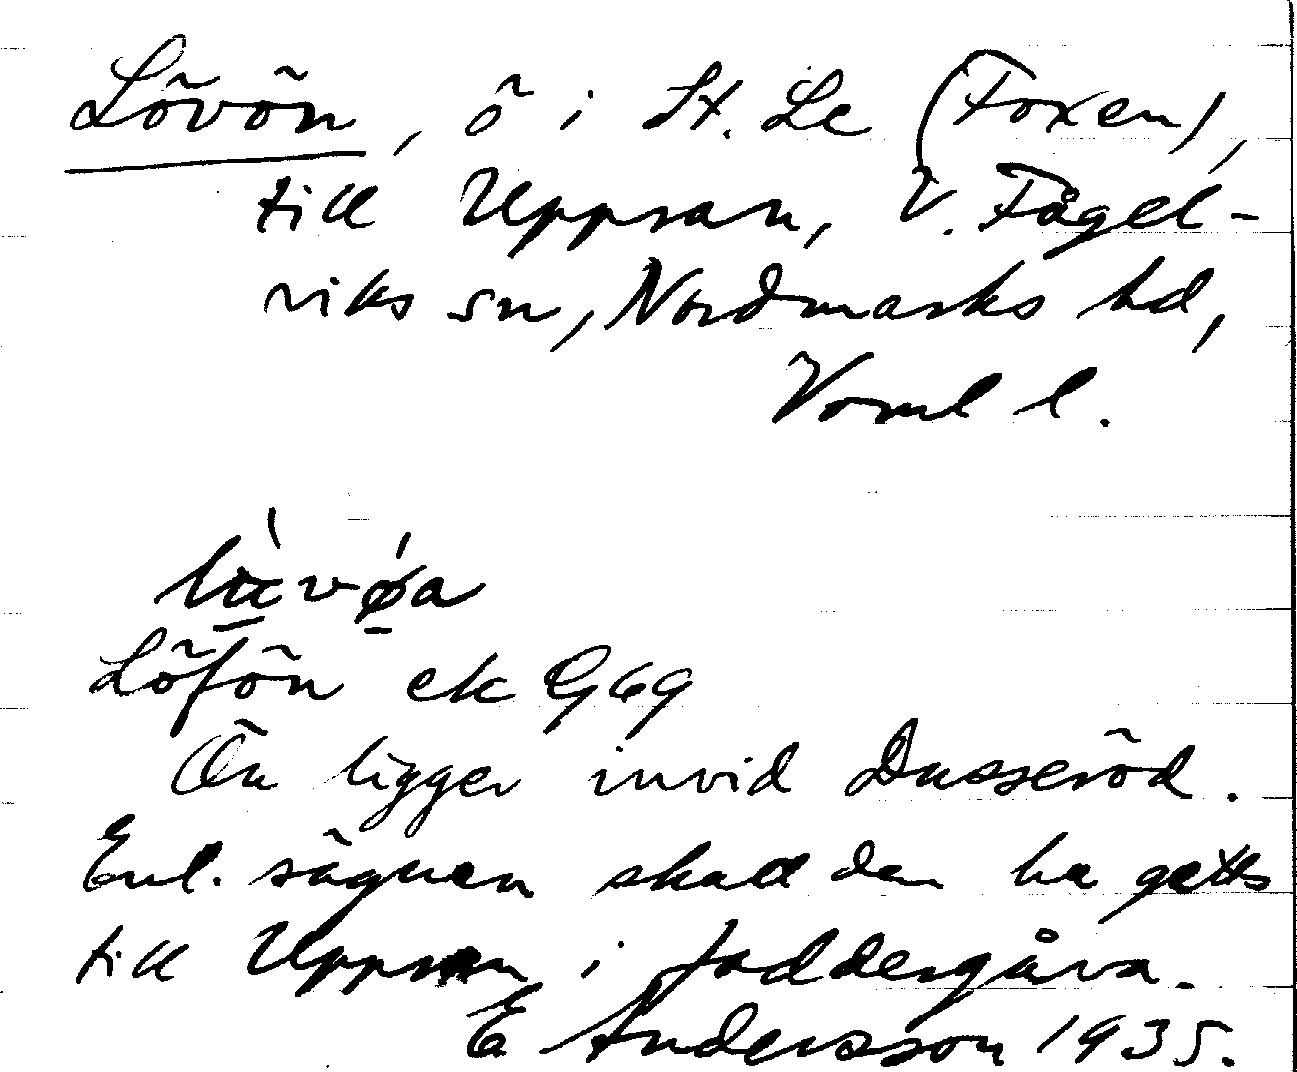 Lövön, ö i St. Le (Foxen),
till Uppsan, V. Fågel-
viks sn, Nordmarks hd,
Verml l.
Löfön ek G69
Ön ligger invid Dusseröd.
Enl. sägnen skall den ha getts
till Uppsan i faddergåva.
E Andersson 1935.